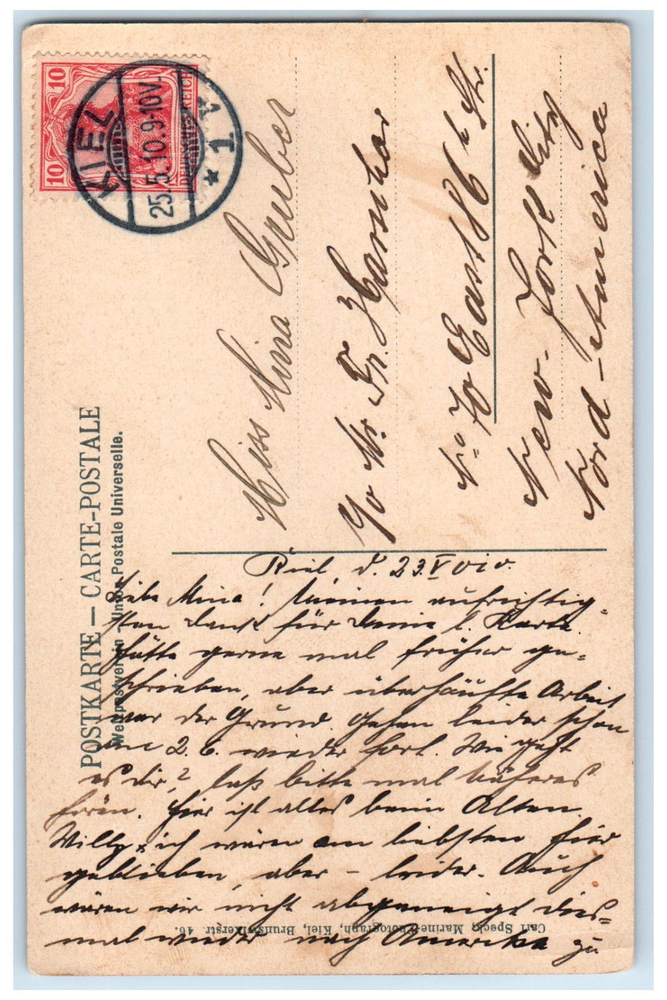 10 10
KIEL
25.5.10.9-10V.
* 1
REICH
POSTKARTE — CARTE-POSTALE
Weltpostverein — Union Postale Universelle.
Miss Mina Gruber
c/o Mr. Fr. Harnhar
No. 70 East 86th Str.
New-York City
Nord-America
Kiel, d. 23.V 010.
Liebe Mina! Meinen aufrichtig-
sten Dank für Deine l. Karte.
Hätte gerne mal früher ge-
schrieben, aber überhäufte Arbeit
war der Grund. Gehen leider schon
am 2.6. wieder fort. Wie geht
es dir? Laß bitte mal näheres
hören. Hier ist alles beim Alten.
Willy & ich wären am liebsten hier
geblieben, aber - leider. Auch
wären wir nicht abgeneigt dies-
mal wieder nach Amerika zu
Carl Speck, Marine-Photograph, Kiel, Brunswikerstr. 46.